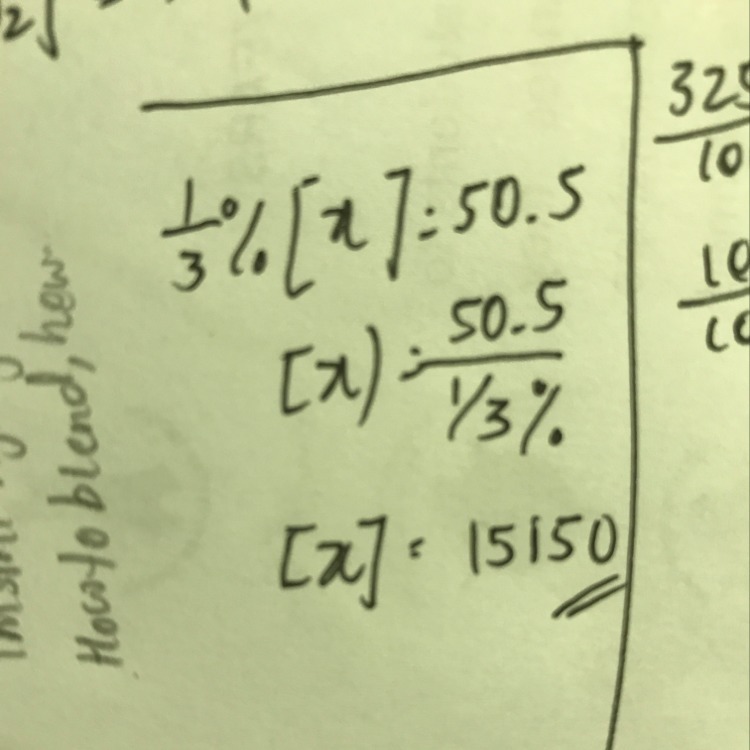 1/3 % [x] = 50.5
[x) = 50.5 / 1/3 %
[x] = 15150
325
10
10
10
How to blend, how